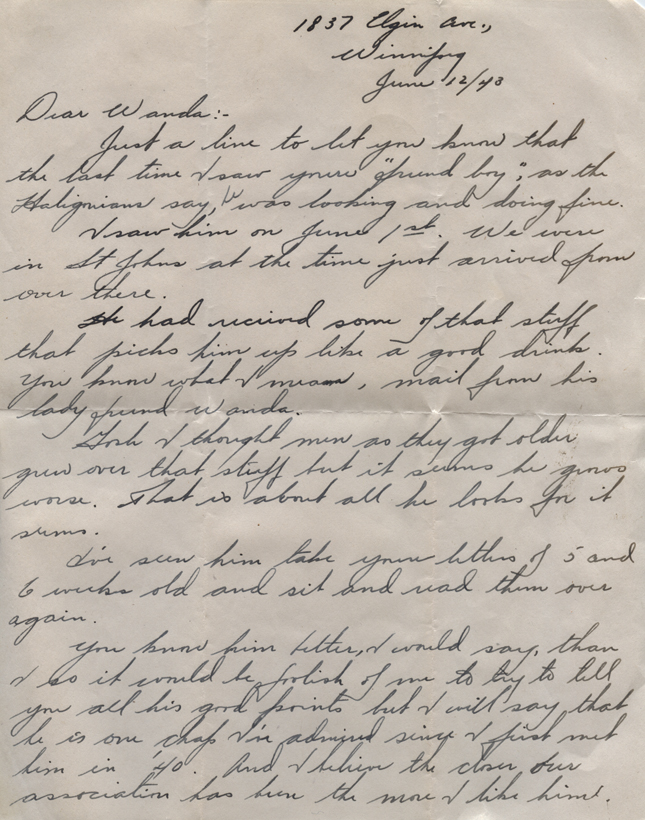 1837 Elgin Ave.,
Winnipeg
June 12/43
Dear Wanda:-
Just a line to let you know that
the last time I saw youre "friend boy", as the
Halignians say, he was looking and doing fine.
I saw him on June 1st. We were
in St Johns at the time just arrived from
over there.
He had recived some of that stuff
that picks him up like a good drink.
You know what I mean, mail from his
lady friend Wanda.
Gosh I thought men as they got older
grew over that stuff but it seems he grows
worse. That is about all he looks for it
seems.
I've seen him take youre letters of 5 and
6 weeks old and sit and read them over
again.
You know him better, I would say, than
I so it would be folish of me to try to tell
you all his good points but I will say that
he is one chap I've admired since I first met
him in '40. And I believe the closer our
association has been the more I like him.